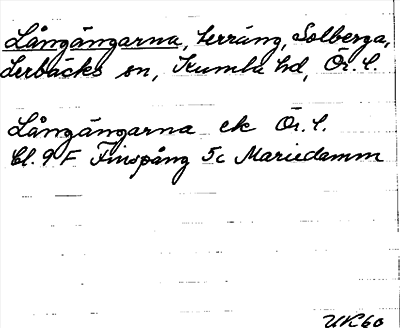 Långängarna, terräng, Solberga,
Lerbäcks sn, Kumla hd, Ör. l.
Långängarna ek Ör. l.
Bl. 9 F Finspång 5c Mariedamm
UK 60